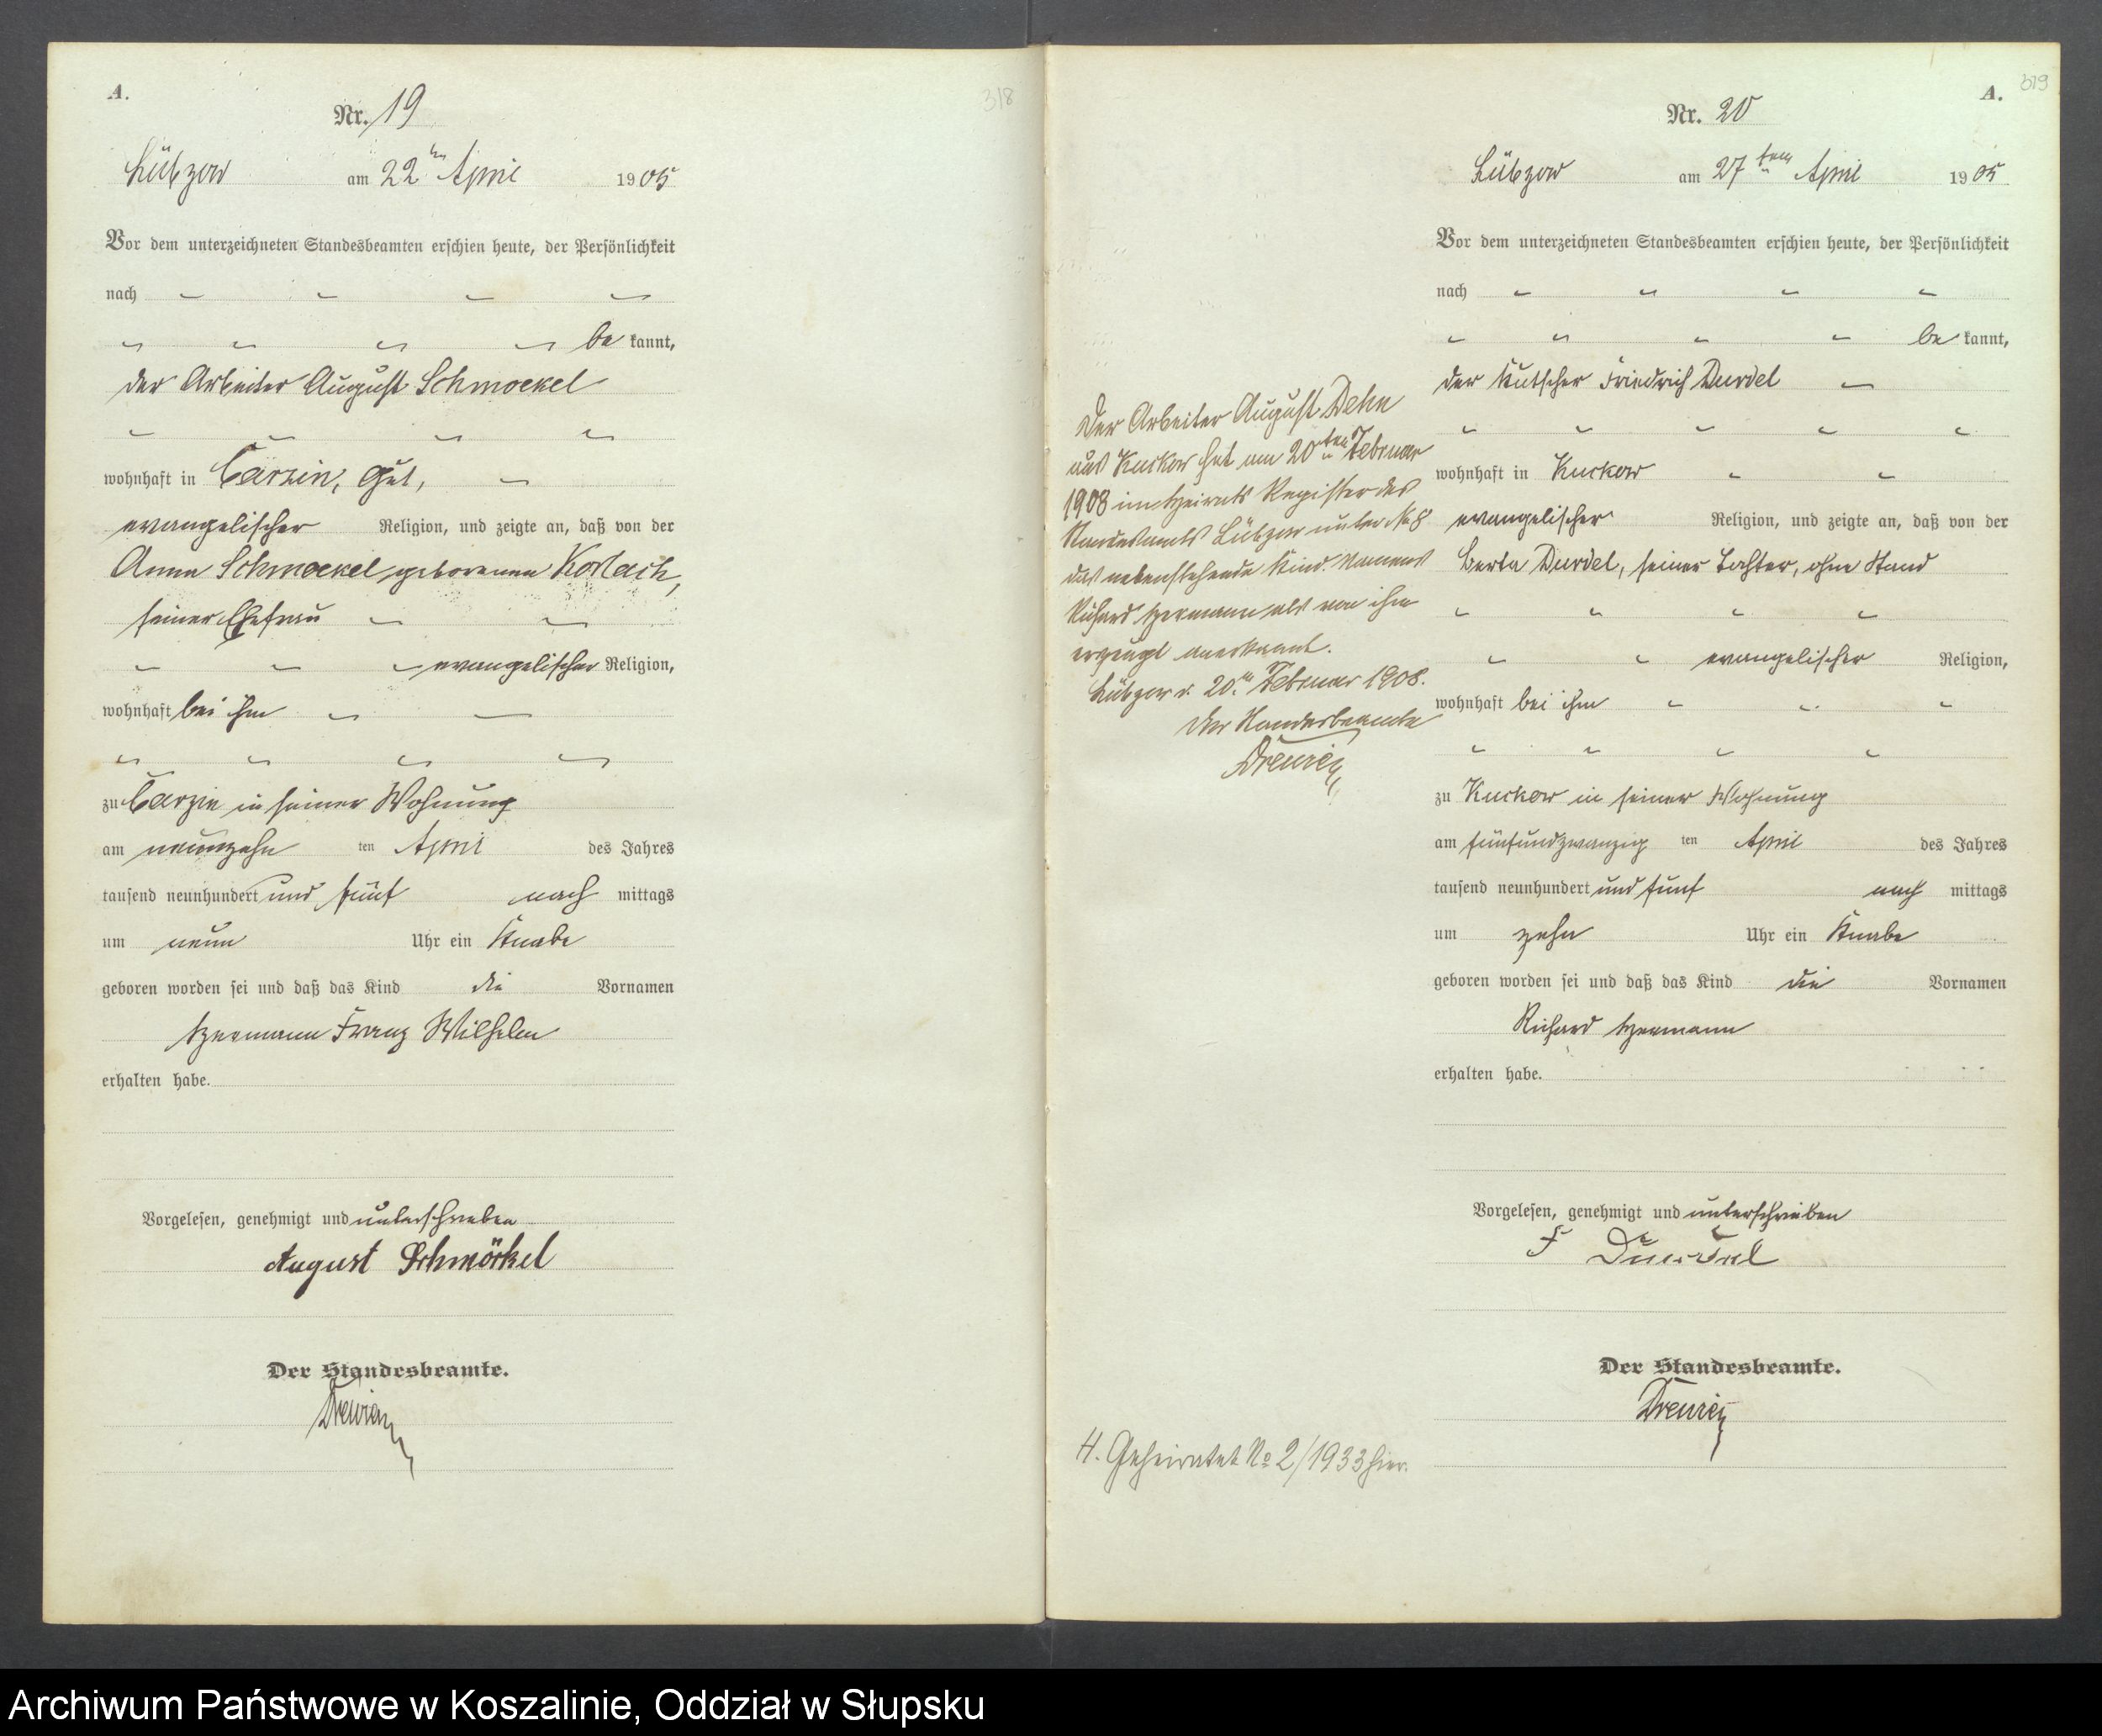 A.
318
Nr. 19
Lübzow am 22ten April 1905
Vor dem unterzeichneten Standesbeamten erschien heute, der Persönlichkeit
nach
be kannt,
der Arbeiter August Schmoekel
wohnhaft in Carzin, Gut,
evangelischer Religion, und zeigte an, daß von der
Anna Schmoekel geborenen
seiner Ehefrau
evangelischer Religion,
wohnhaft bei ihm
zu Carzin in seiner Wohnung
am neunzehn ten April des Jahres
tausend neunhundert und fünf nach mittags
um neun Uhr ein Knabe
geboren worden sei und daß das Kind die Vornamen
Hermann Franz Wilhelm
erhalten habe.
Vorgelesen, genehmigt und unterschrieben
August Schmökel
Der Standesbeamte.
A.
319
Nr. 20
Lübzow am 27ten April 1905
Vor dem unterzeichneten Standesbeamten erschien heute, der Persönlichkeit
nach
be kannt,
der Kutscher Friedrich Durdel
wohnhaft in Kuckow
evangelischer Religion, und zeigte an, daß von der
Berta Durdel, seiner Tochter, ohne Stand
evangelischer Religion,
wohnhaft bei ihm
zu Kuckow in seiner Wohnung
am fünfundzwanzig ten April des Jahres
tausend neunhundert und fünf nach mittags
um zehn Uhr ein Knabe
geboren worden sei und daß das Kind die Vornamen
Richard Hermann
erhalten habe.
Vorgelesen, genehmigt und unterschrieben
F
Der Standesbeamte.
Der Arbeiter August Dehn
aus Kuckow hat am 20ten Februar
1908 im Heirats Register des
Standesamts Lübzow unter No 8
das nebenstehende Kind Namens
Richard Hermann als von ihm
erzeugt anerkannt.
Lübzow d. 20ten Februar 1908.
Der Standesbeamte
H. Geheiratet No 2/1933 hier.
Archiwum Państwowe w Koszalinie, Oddział w Słupsku